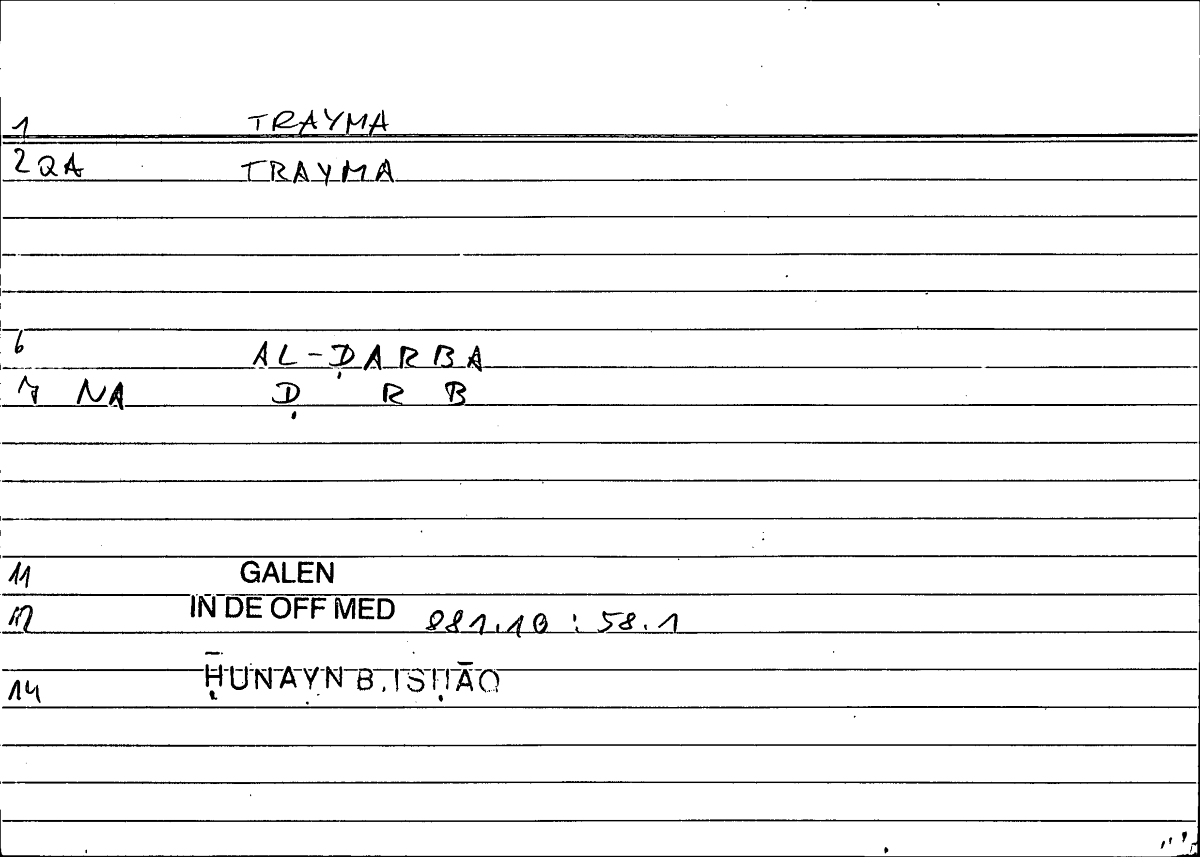 1 TRAYMA
2 QA TRAYMA
6 AL-ḌARBA
7 NA Ḍ R B
11 GALEN
12 IN DE OFF MED 881.10 : 58.1
14 ḤUNAYN B. ISḤĀQ